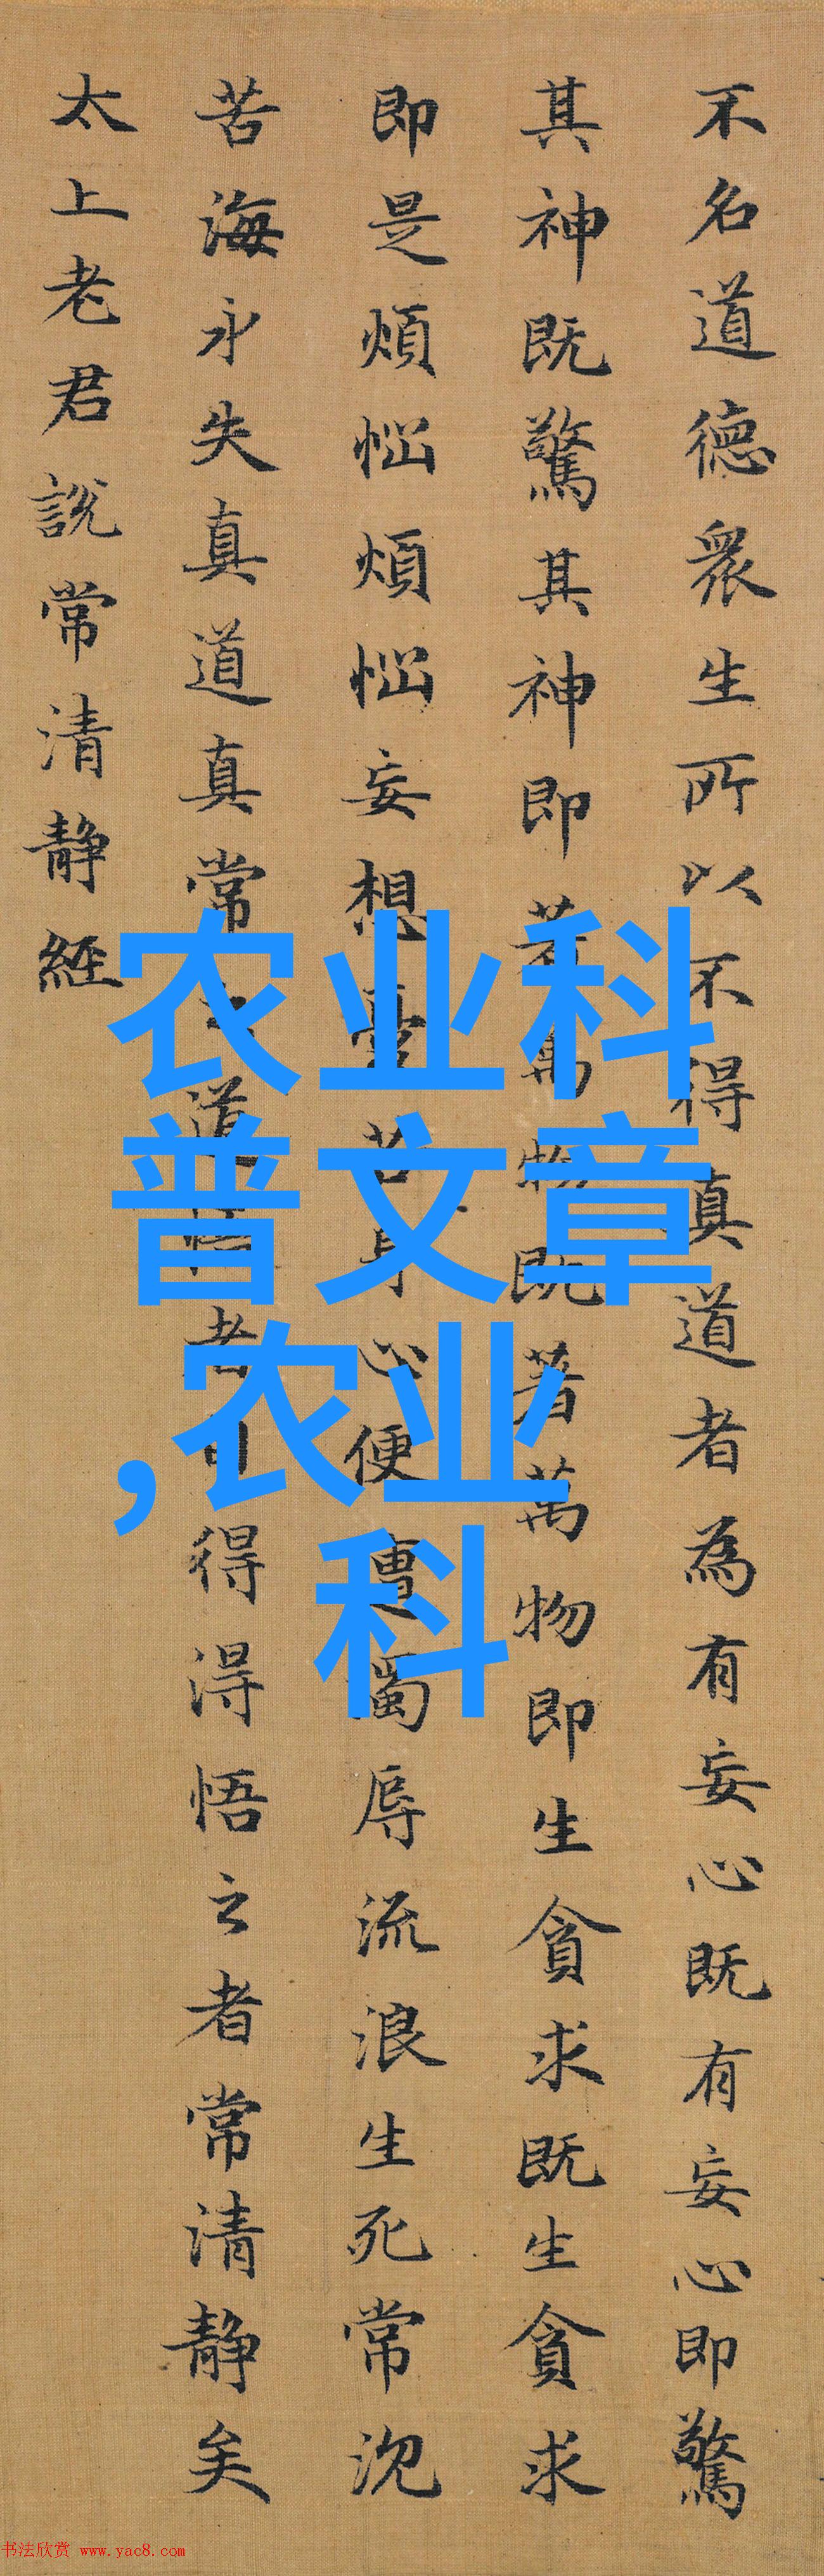 不名道德眾生所以不得真道者為有妄心既有妄心即驚
其神既驚其神即著萬物既著萬物即生貪求既生貪求
即是煩惱煩惱妄想憂苦身心便遭濁辱流浪生死常沉
苦海永失真道真常之道悟者自得得悟之者常清靜矣
太上老君說常清靜經
农业科
普文章
,农业
科
书法欣赏 www.yac8.com